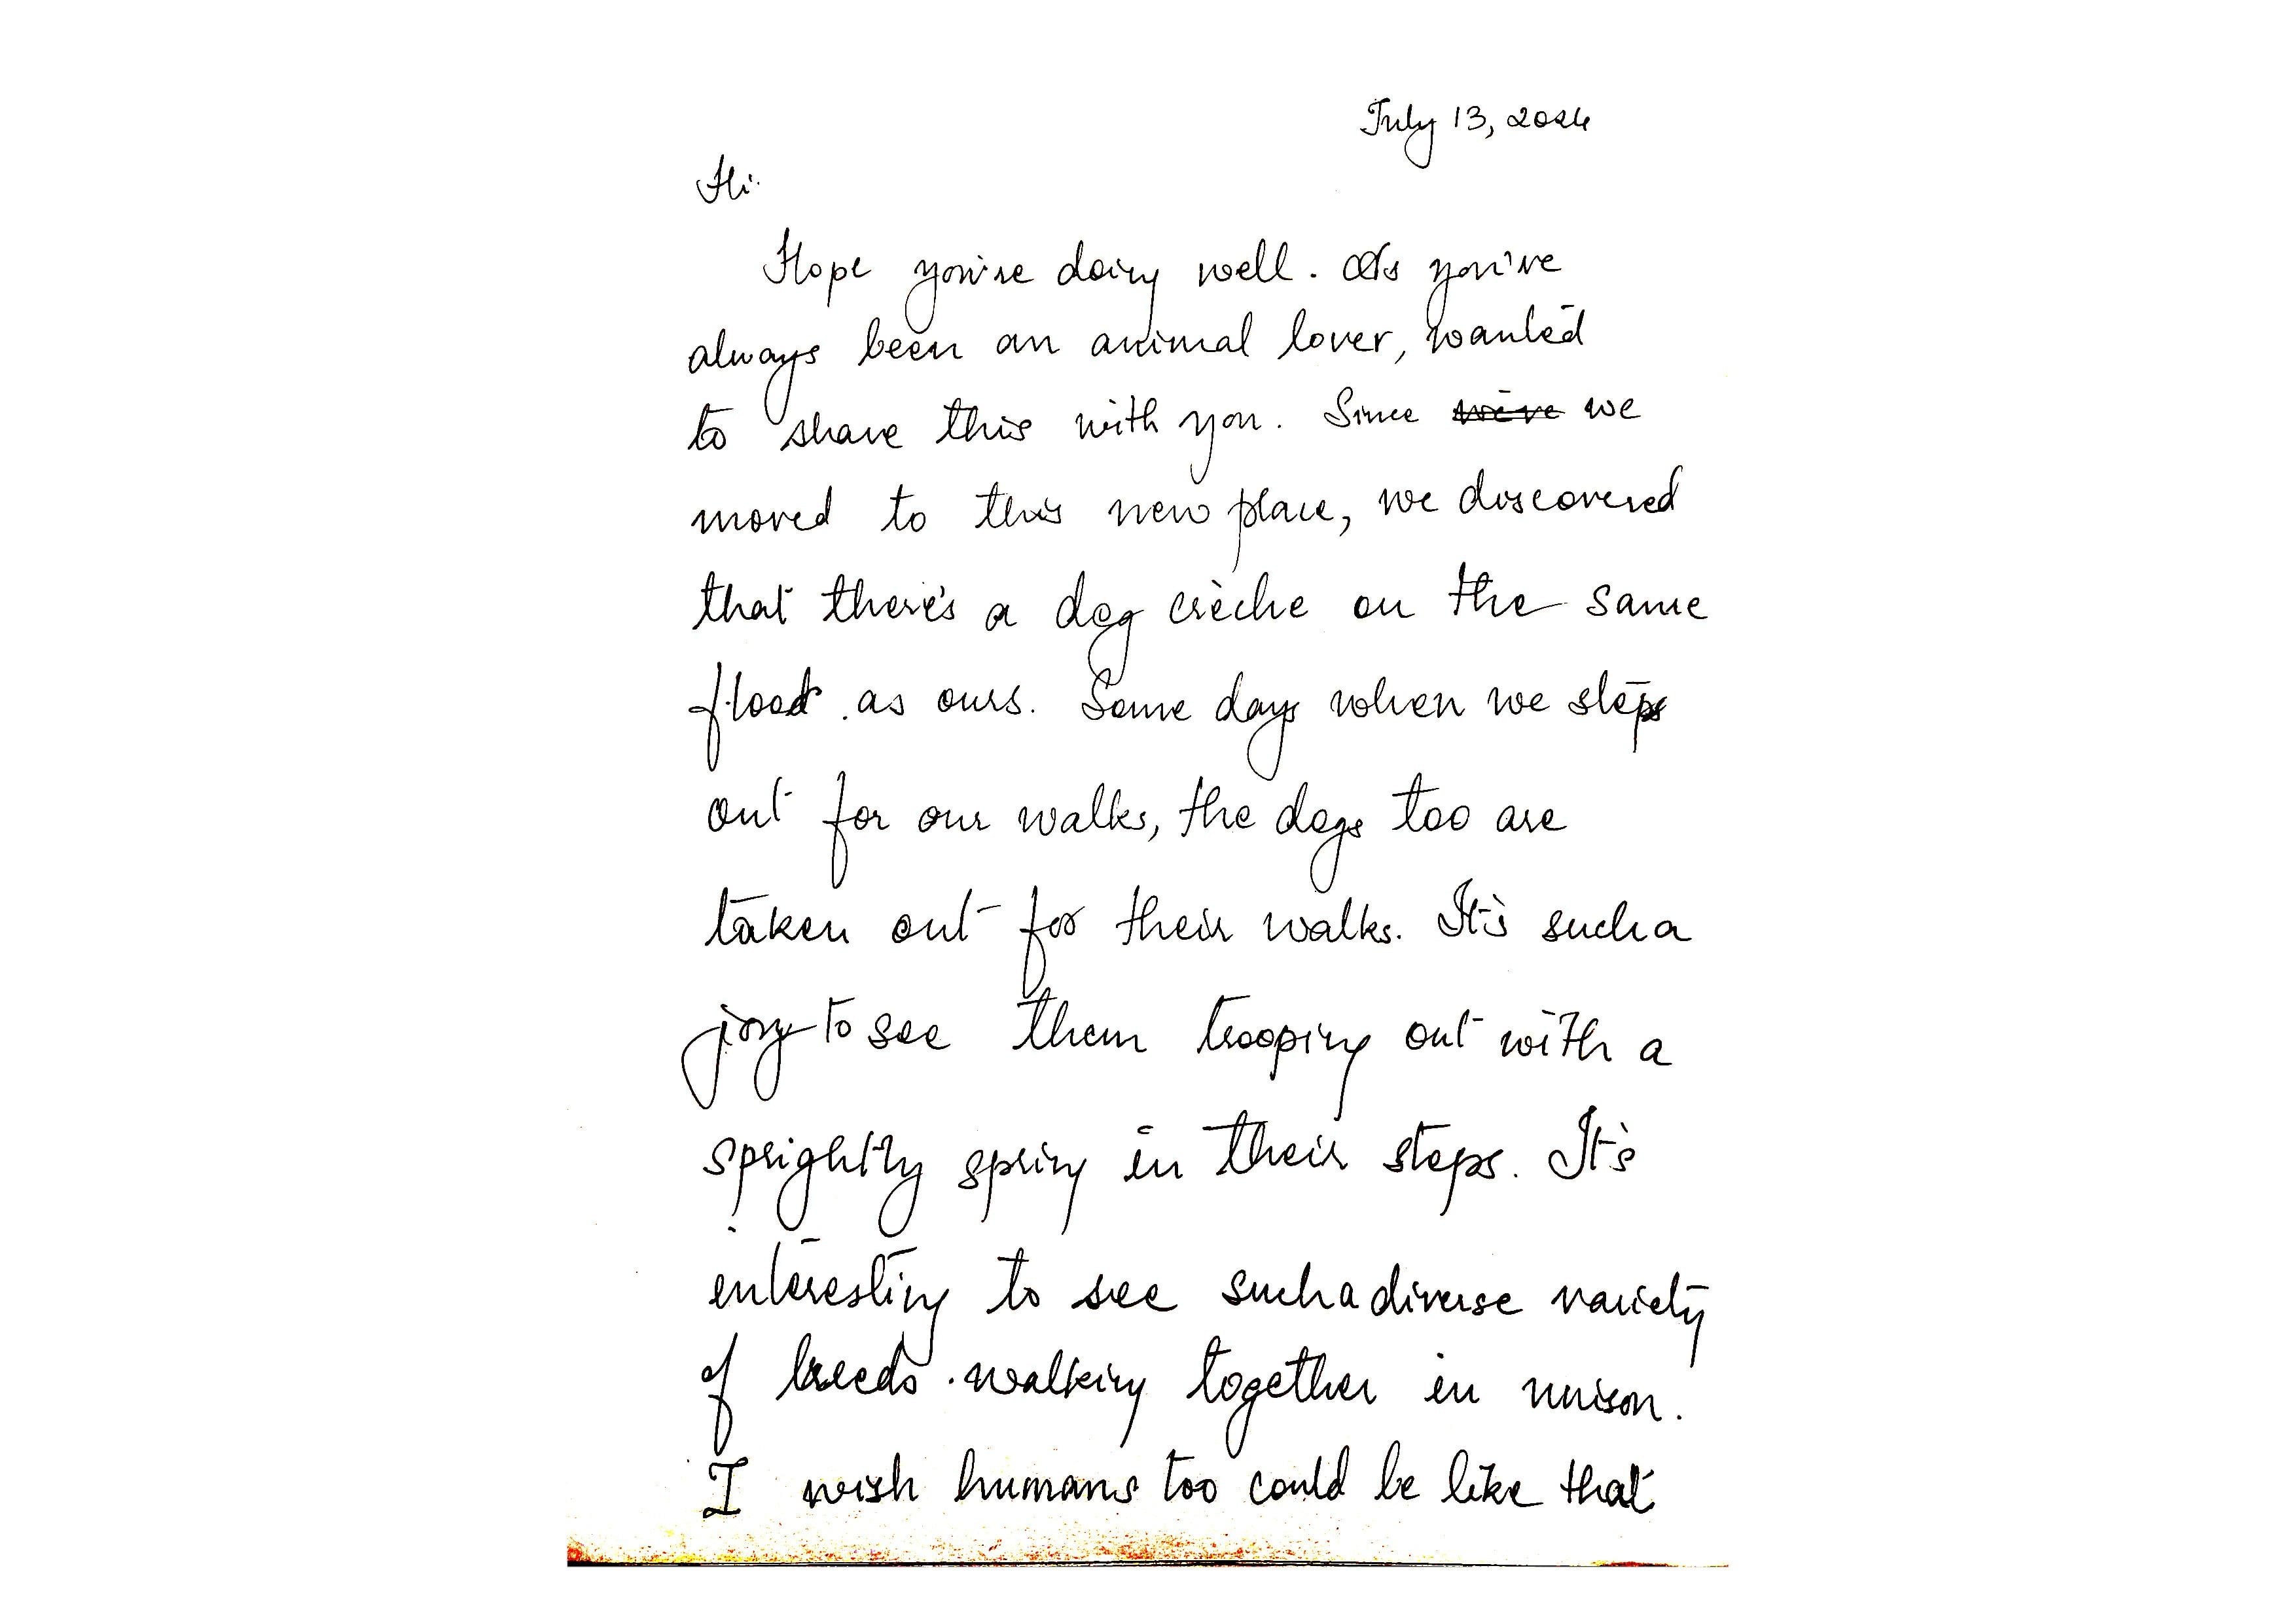 July 13, 2024
Hi.
Hope you're doing well. As you've
always been an animal lover, wanted
to share this with you. Since we've we
moved to this new place, we discovered
that there's a dog crèche on the same
floor as ours. Some days when we step
out for our walks, the dogs too are
taken out for their walks. It's such a
joy to see them trooping out with a
sprightly spring in their steps. It's
interesting to see such a diverse variety
of breeds walking together in unison.
I wish humans too could be like that